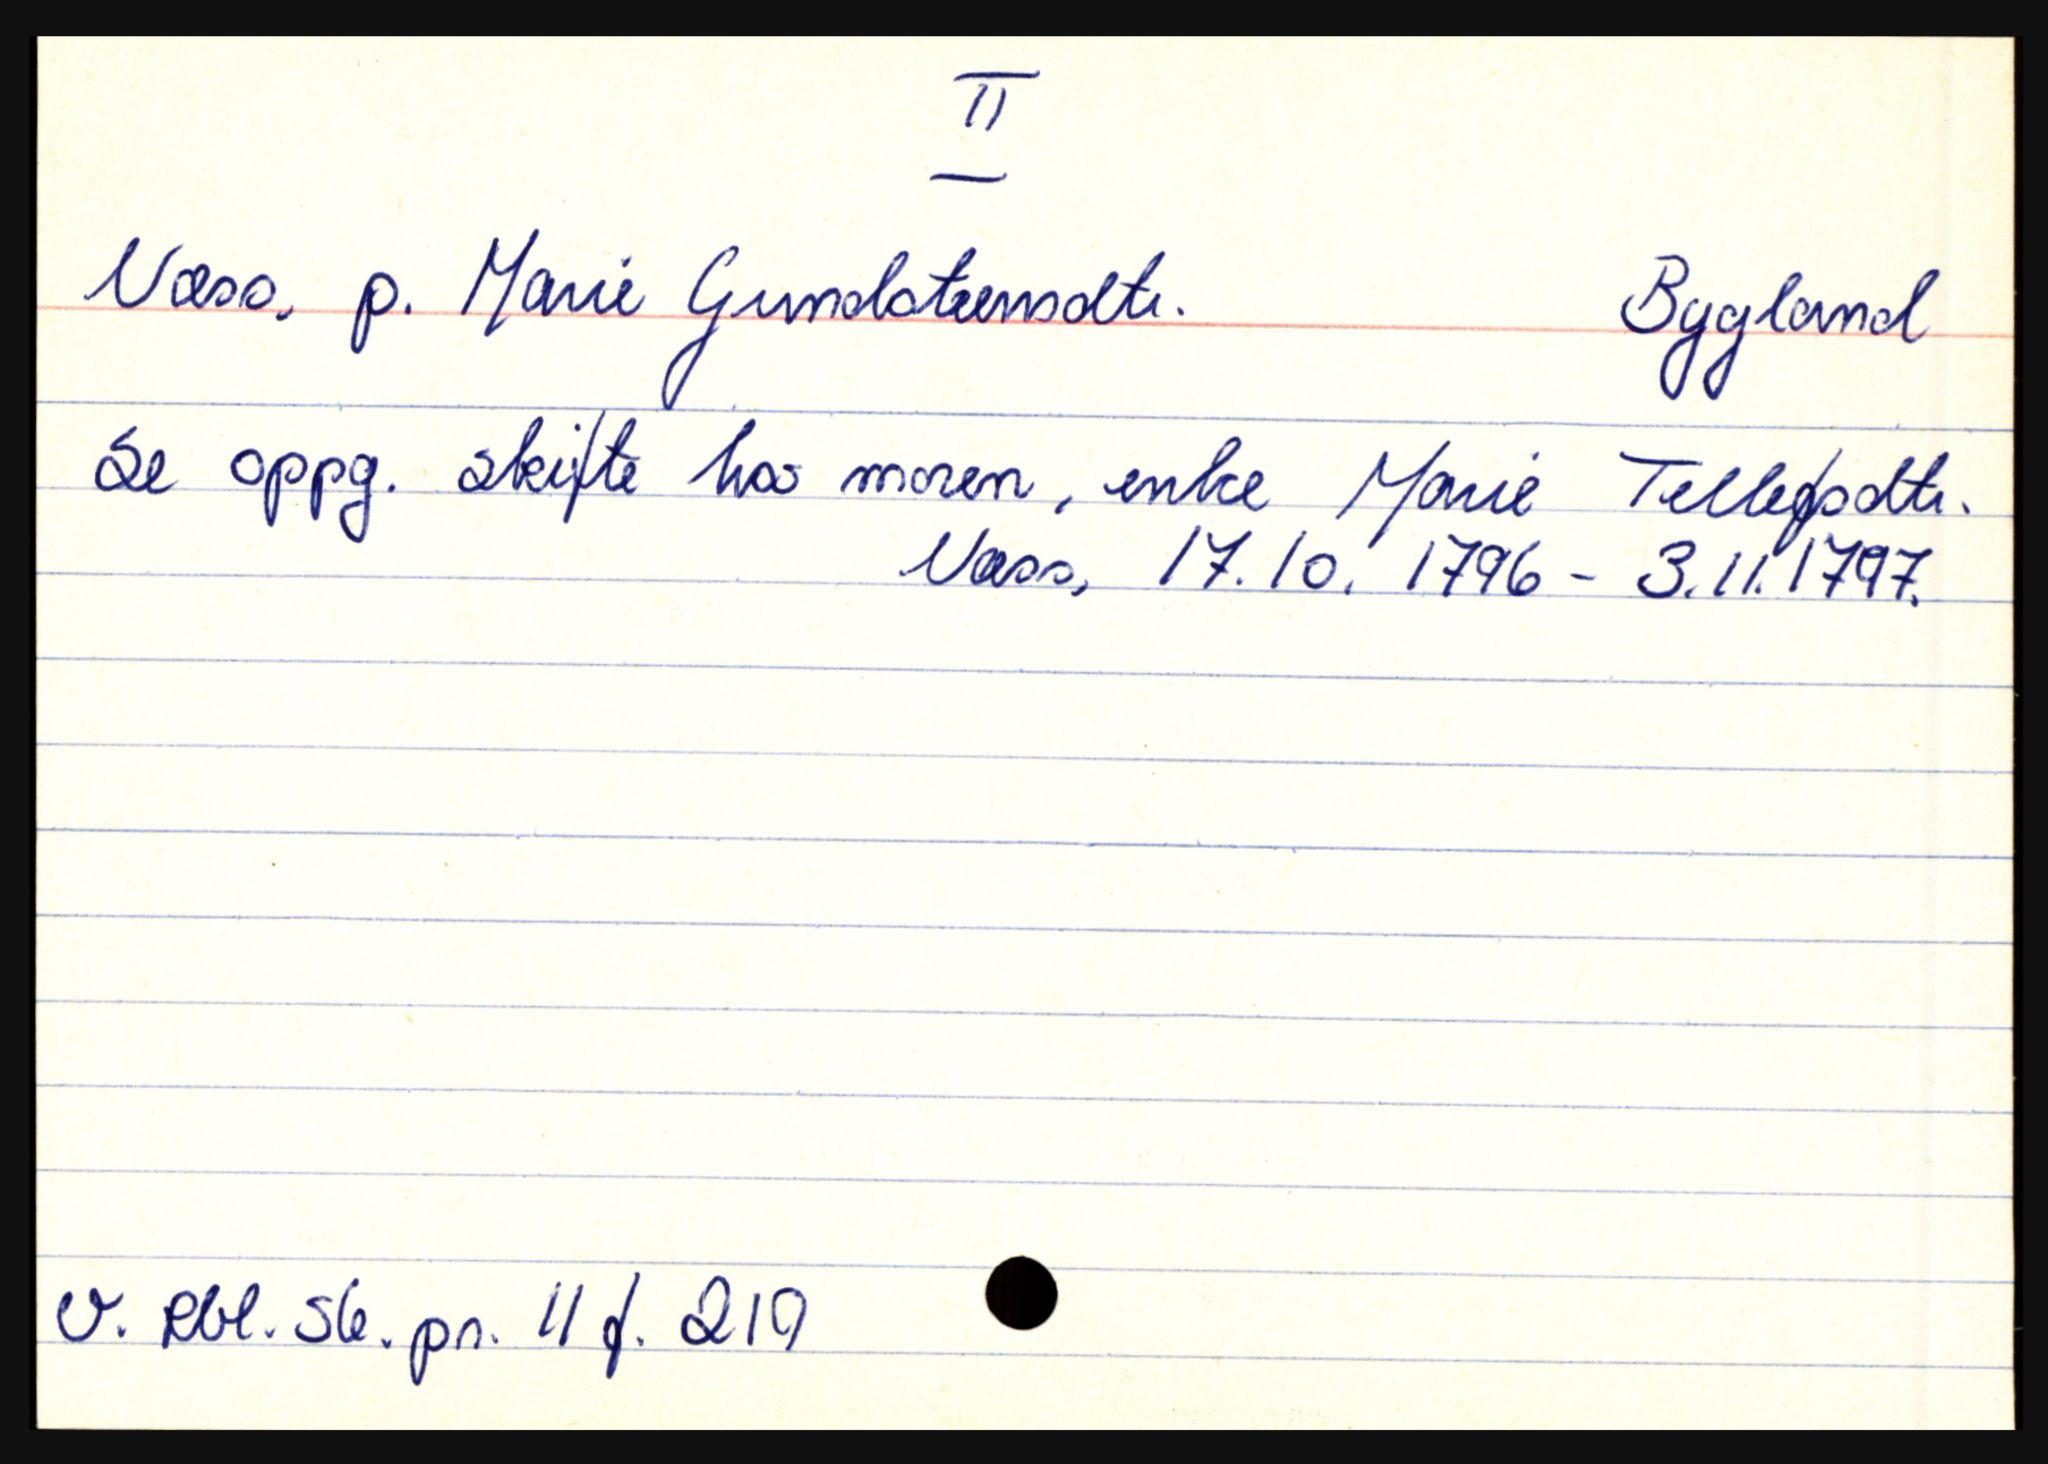 II
Næss, p. Marie Gundsteensdtr. Bygland
Se oppg. skifte hos moren, enke Marie Tellefsdtr.
Næss, 17.10. 1796 - 3.11.1797.
V. Rbl. Sk. pr. 11 f. 210